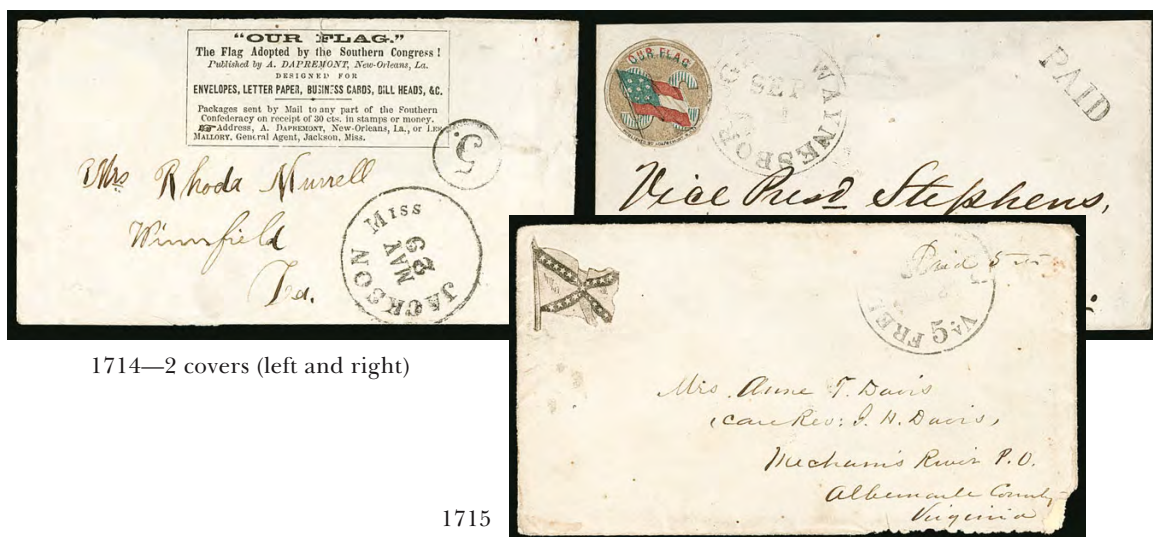 “OUR FLAG.”
The Flag Adopted by the Southern Congress!
Published by A. DAPREMONT, New-Orleans, La.
DESIGNED FOR
ENVELOPES, LETTER PAPER, BUSINESS CARDS, BILL HEADS, &C.
Packages sent by Mail to any part of the Southern
Confederacy on receipt of 30 cts. in stamps or money.
Address, A. DAPREMONT, New-Orleans, La., or LEM
MALLORY, General Agent, Jackson, Miss.
5
Mrs Rhoda Murrell
Winnfield
JACKSON MISS
MAY
29
OUR FLAG
WAYNESBORO G
SEP
PAID
Vice Prest Stephens,
Paid 5
FRE
5
VA
Mrs. Anne T. Davis
(care Rev: J. H. Davis,
Mecham's River P.O.
Albemarle County
Virginia
1714—2 covers (left and right)
1715